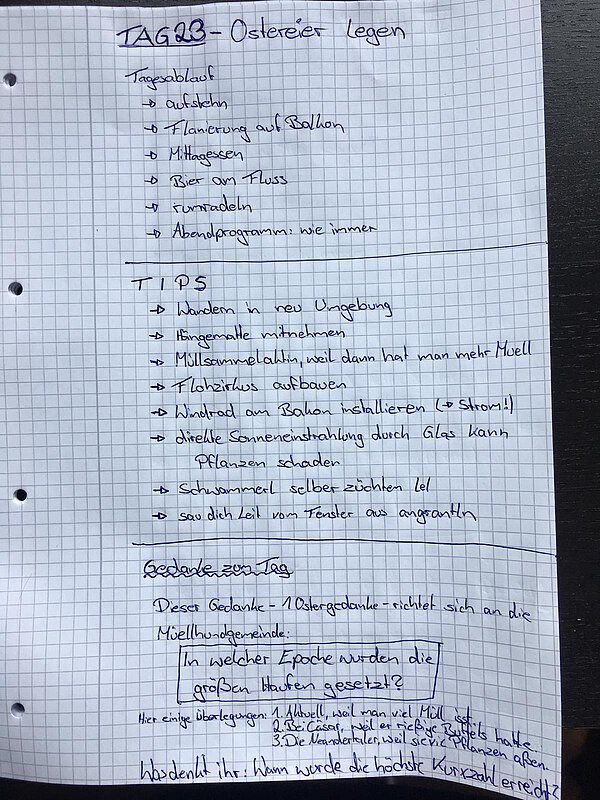 TAG 23 - Ostereier legen
Tagesablauf
→ aufstehn
→ Flanierung auf Balkon
→ Mittagessen
→ Bier am Fluss
→ rumradeln
→ Abendprogramm: wie immer
TIPS
→ Wandern in neu Umgebung
→ Hängematte mitnehmen
→ Müllsammelaktin, weil dann hat man mehr Muell
→ Flohzirkus aufbauen
→ Windrad am Balkon installieren (→ Strom!)
→ direkte Sonneneinstrahlung durch Glas kann
Pflanzen schaden
→ Schwammerl selber züchten lel
→ sau dich Leit vom Fenster aus angrantln
Gedanke zum Tag
Dieser Gedanke - 1 Ostergedanke - richtet sich an die
Müellhundgemeinde:
In welcher Epoche wurden die
größen Haufen gesetzt?
Hier einige Überlegungen: 1. Aktuell, weil man viel Müll isst.
2. Bei Cäsar, weil er rießige Buffets hatte.
3. Die Neandertaler, weil sie viel Pflanzen aßen.
Was denkt ihr: Wann wurde die höchste Kurxzahl erreicht?